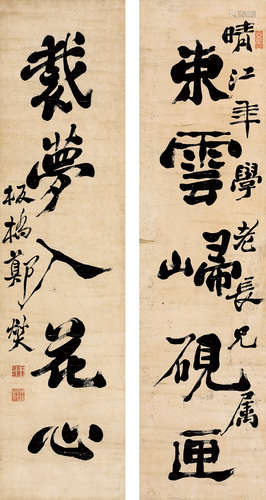 晴江年學老長兄屬
束雲歸硯匣
裁夢入花心
板橋鄭燮